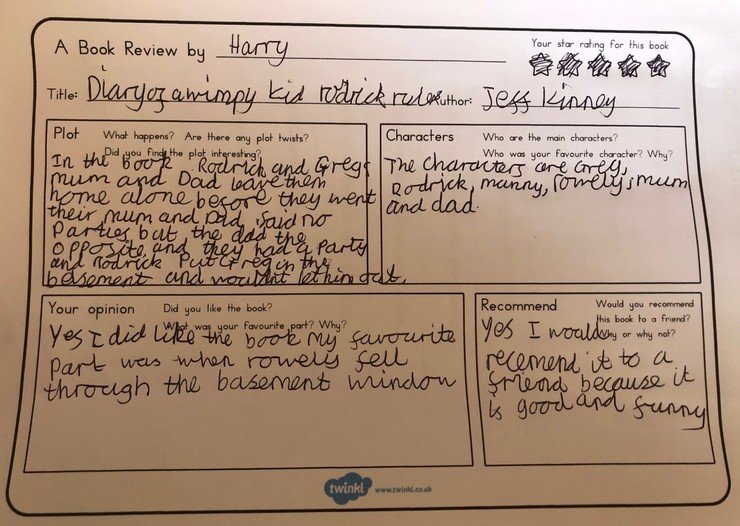 A Book Review by Harry
Your star rating for this book
Title: Diary of a wimpy kid rodrick rules Author: Jeff Kinney
Plot What happens? Are there any plot twists?
Did you find the plot interesting?
In the book Rodrick and Gregs
mum and Dad leave them
home alone before they went
their mum and Dad said no
Parties but the did the
opposite and they had a party
and Rodrick Put Greg in the
basement and wouldnt let him out.
Characters Who are the main characters?
Who was your favourite character? Why?
The characters are Greg,
Rodrick, manny, rowely, mum
and dad.
Your opinion Did you like the book?
What was your favourite part? Why?
Yes I did like the book my favourite
part was when rowely fell
through the basement window
Recommend Would you recommend
this book to a friend?
Why or why not?
Yes I would
recemend it to a
friend because it
is good and funny
twinkl www.twinkl.co.uk